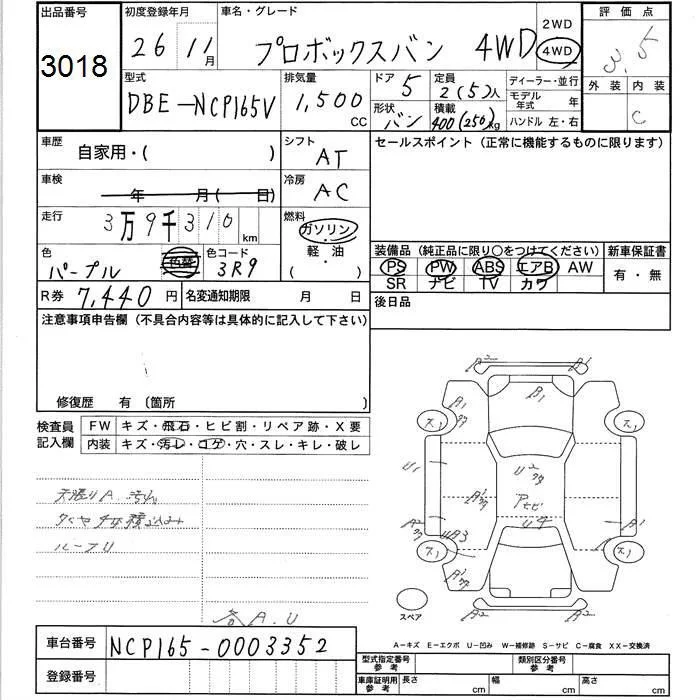 出品番号 初度登録年月 車名・グレード 2WD 評価点
3018 26 11月 プロボックスバン 4WD 4WD 3.5
型式 排気量 ドア 5 定員 2(5)人 ディーラー・並行 外装 内装
DBE-NCP165V 1,500 CC 形状 バン 積載 400(250)kg モデル年式 年 C
ハンドル 左・右
車歴 自家用・( ) シフト AT セールスポイント(正常に機能するものに限ります)
車検 年 月( 日) 冷房 AC
走行 3万9千310 km 燃料 ガソリン・軽油 ( )
色 パープル 色替 色コード 3R9
装備品(純正品に限り○をつけてください) 新車保証書
PS PW ABS エアB AW 有・無
SR ナビ TV カワ
R券 7,440円 名変通知期限 月 日 後日品
注意事項申告欄(不具合内容等は具体的に記入して下さい)
修復歴 有 〔箇所 〕
検査員記入欄 FW キズ・飛石・ヒビ割・リペア跡・X要
内装 キズ・汚レ・コゲ・穴・スレ・キレ・破レ
天張りA.汚れ
タイヤ4本積込み
ルーフU
各A.U
A2 A1
A1 B1
U1 U2
A1
A2 UA3 A1
A2 A2
スペア
車台番号 NCP165-0003352
登録番号
A-キズ E-エクボ U-凹み W-補修跡 S-サビ C-腐食 XX-交換済
型式指定番号 参考 類別区分番号 参考
車庫証明用 参考 長さ cm 幅 cm 高さ cm